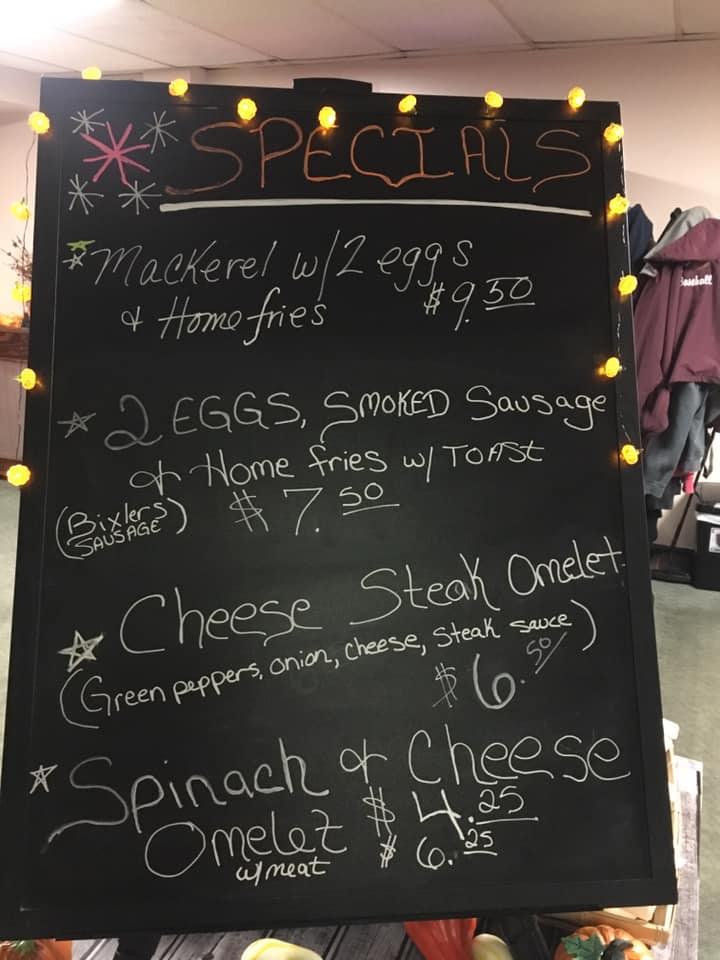 SPECIALS
Mackerel w/ 2 eggs
& Home fries $9.50
2 EGGS, SMOKED Sausage
& Home fries w/ TOAST
(Bixlers SAUSAGE) $7.50
Cheese Steak Omelet
(Green peppers, onion, cheese, steak sauce)
$6.50
Spinach & Cheese
Omelet $4.25
w/ meat $6.25
baseball